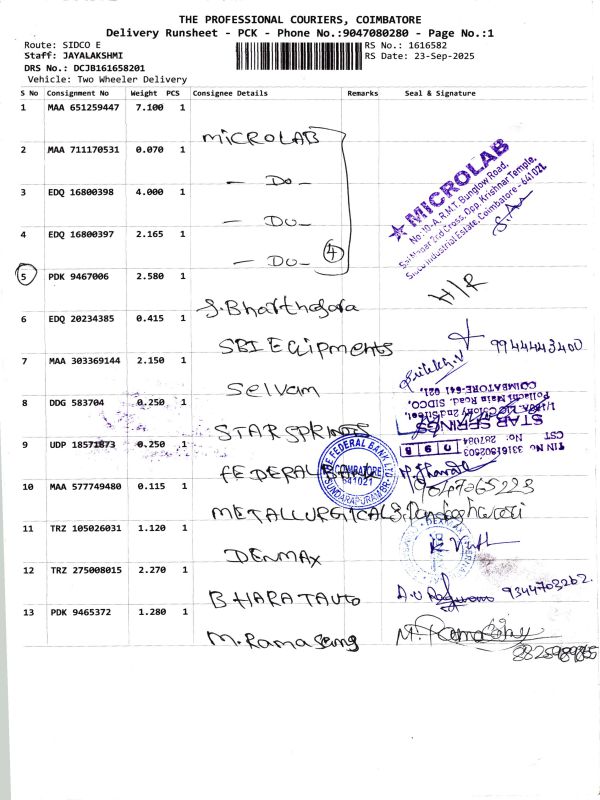 THE PROFESSIONAL COURIERS, COIMBATORE
Delivery Runsheet - PCK - Phone No.:9047080280 - Page No.:1
Route: SIDCO E
RS No.: 1616582
Staff: JAYALAKSHMI
RS Date: 23-Sep-2025
DRS No.: DCJB161658201
Vehicle: Two Wheeler Delivery
S No Consignment No Weight PCS Consignee Details Remarks Seal & Signature
1 MAA 651259447 7.100 1
MICROLAB
2 MAA 711170531 0.070 1
- Do -
★ MICROLAB
No:10-A, R.M.T. Bunglow Road,
Sai Nagar 2nd Cross, Opp. Krishnar Temple,
Sidco Industrial Estate, Coimbatore - 641021
3 EDQ 16800398 4.000 1
- Do -
4 EDQ 16800397 2.165 1
- Do -
4
5 PDK 9467006 2.580 1
H/R
6 EDQ 20234385 0.415 1
SBI EQuipments
9944443400
7 MAA 303369144 2.150 1
Selvam
8 DDG 583704 0.250 1
STAR SPRINGS
STAR SPRINGS
Pollachi Main Road, SIDCO,
COIMBATORE-641 021.
TIN No: 3318182503
CST No: 287084
9 UDP 18571873 0.250 1
FEDERAL BANK
THE FEDERAL BANK LTD.
COIMBATORE
641021
SUNDARAPURAM BR.
10 MAA 577749480 0.115 1
METALLURGICALS
9047265223
11 TRZ 105026031 1.120 1
DENMAX
12 TRZ 275008015 2.270 1
BHARAT AUTO
9344703262.
13 PDK 9465372 1.280 1
M. Ramasamy